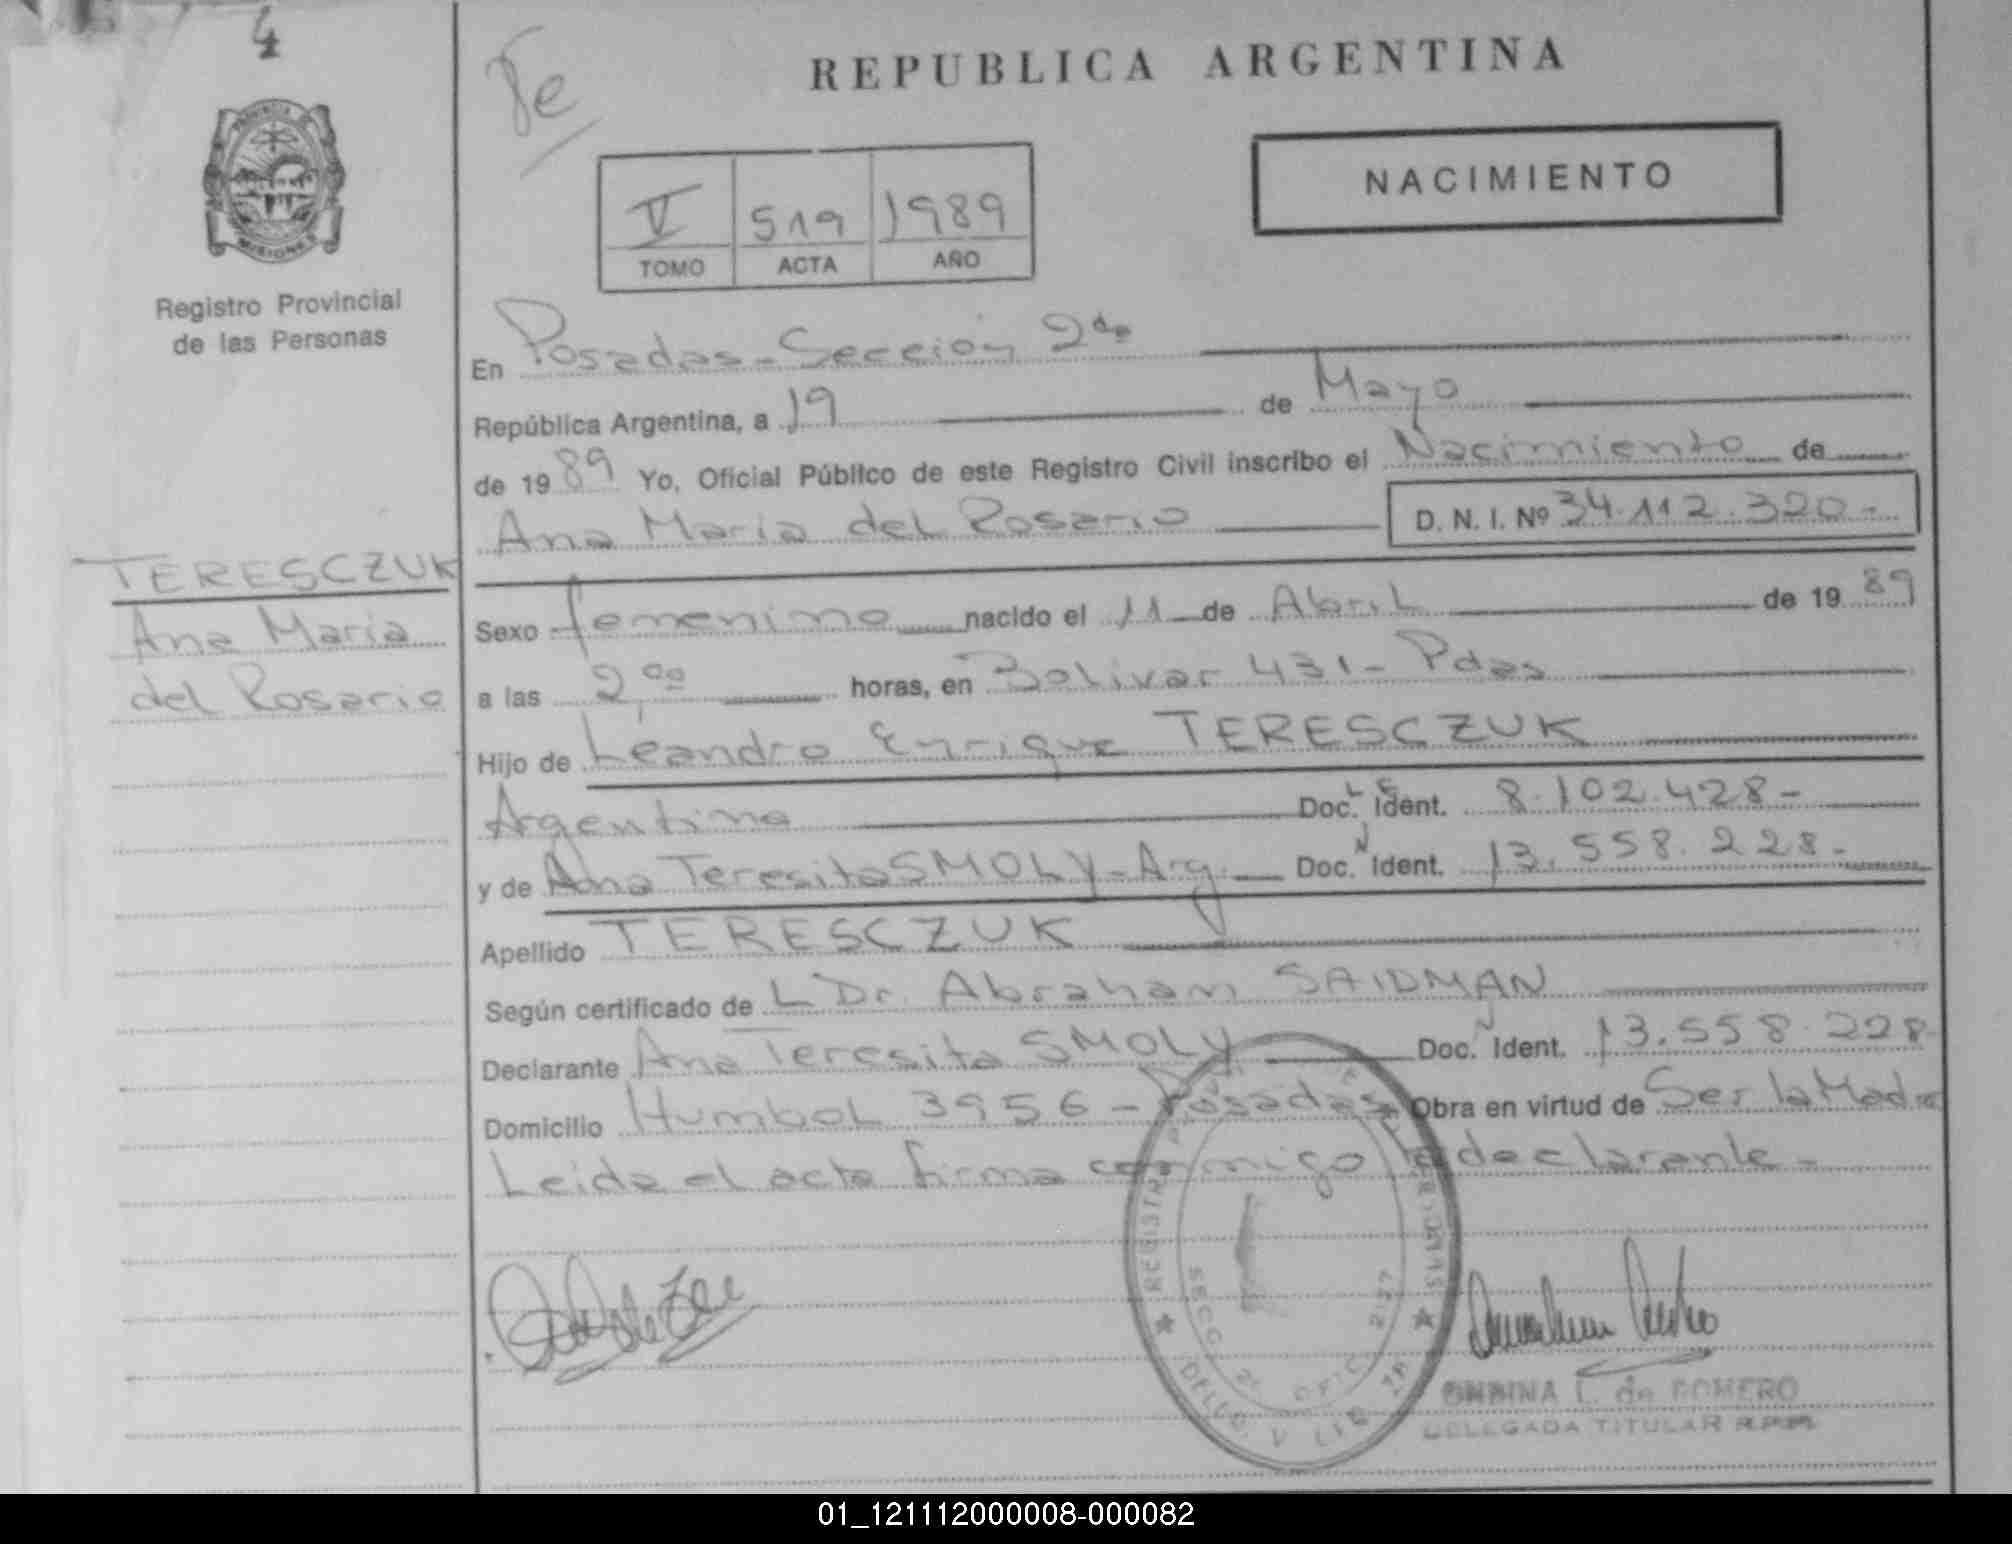 4
Te
REPUBLICA ARGENTINA
PROVINCIA DE
MISIONES
Registro Provincial
de las Personas
NACIMIENTO
V 519 1989
TOMO ACTA AÑO
En Posadas - Sección 2da
República Argentina, a 19 de Mayo
de 1989 Yo, Oficial Público de este Registro Civil inscribo el Nacimiento de
Ana Maria del Rosario D. N. I. Nº 34.112.320.-
TERESCZUK
Ana Maria
del Rosario
Sexo femenino nacido el 11 de Abril de 1989
a las 2,00 horas, en Bolivar 431 - Pdas
Hijo de Leandro Enrique TERESCZUK
Argentino Doc. L E Ident. 8.102.428-
y de Ana Teresita SMOLY - Arg. Doc. N Ident. 13.558.228.-
Apellido TERESCZUK
Según certificado de L Dr. Abraham SAIDMAN
Declarante Ana Teresita SMOLY Doc. N Ident. 13.558.228
Domicilio Humbol 3956 - Posadas Obra en virtud de Ser la Madre
Leida el acta firma conmigo la declarante -
ONDINA L. de ROMERO
DELEGADA TITULAR
01_121112000008-000082